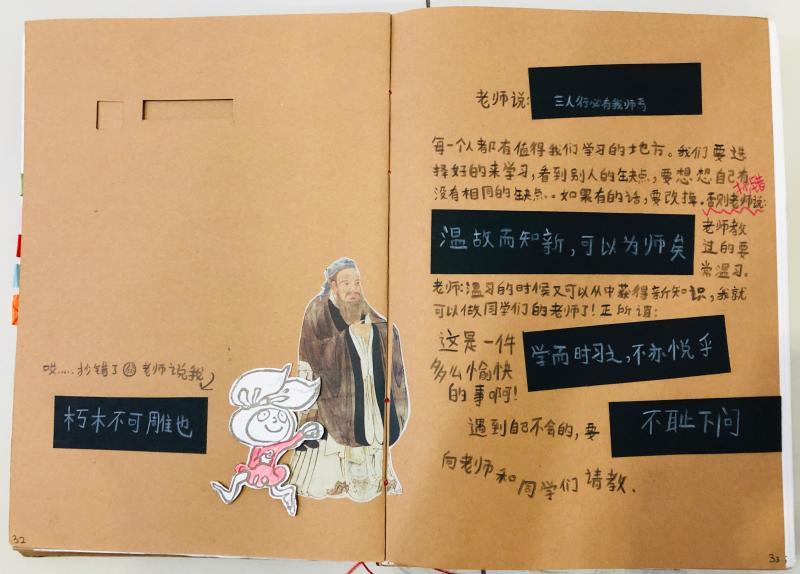 哎.....抄错了 老师说我
朽木不可雕也
32
老师说:
三人行必有我师焉
每一个人都有值得我们学习的地方。我们要选
择好的来学习,看到别人的缺点,要想想自己有
没有相同的缺点..如果有的话,要改掉.否则老师说:
抄错
温故而知新,可以为师矣
老师教
过的要
常温习.
老师:温习的时候又可以从中获得新知识,我就
可以做同学们的老师了!正所谓:
这是一件
多么愉快
的事啊!
学而时习之,不亦悦乎
遇到自己不会的,要
不耻下问
向老师和同学们请教.
33